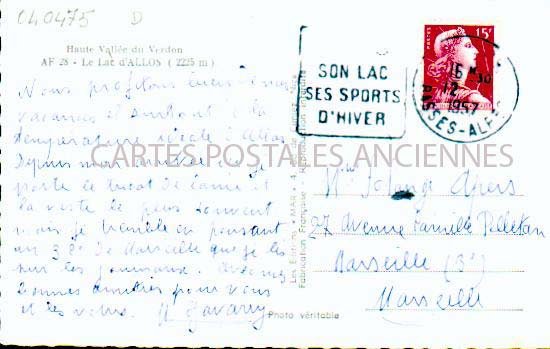 040475 D
Haute Vallée du Verdon
AF 28 - Le Lac d'ALLOS ( 2225 m )
Nous profitons bien de nos
vacances et surtout de la
température idéale d'Allos
Depuis mon arrivée ici je
porte le tricot de laine et
la veste le plus souvent
mais je tremble en pensant
au 38° de Marseille que je lis
sur les journaux.
Bonnes amitiés pour vous
et les vôtres.
SON LAC
SES SPORTS
D'HIVER
POSTES 15F
16 H 30
12
1957
BASSES-ALPES
CARTES POSTALES ANCIENNES
Les Editions "MAR"
Fabrication Française - Reproduction interdite
Photo véritable
27 Avenue Camille Pelletan
Marseille (3e)
Marseille